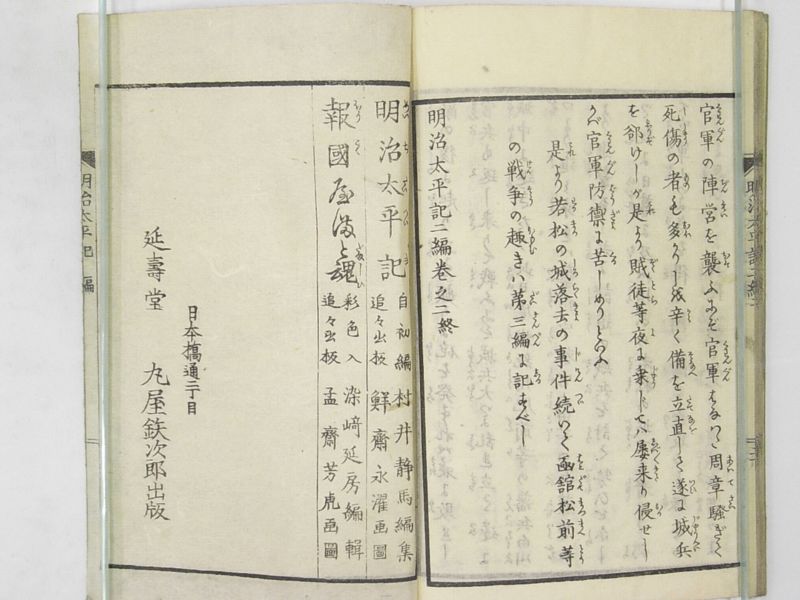 官軍の陣営を襲ふにぞ官軍はなはゞ周章騒ぎて
死傷の者も多かりしを辛く備を立直して遂に城兵
を郤けしが是より賊徒等夜に乗じては屡来り侵せし
かば官軍防禦に苦しめりといふ
是より若松の城落去の事件続いて函館松前等
の戦争の趣きハ第三編に記すべし
明治太平記二編巻之二終
明治太平記二編
明治太平記
自初編
追々出板
村井静馬編集
鮮齋永濯画圖
報國やまと魂
彩色入
追々出板
染﨑延房編輯
孟齋芳虎画圖
日本橋通二丁目
延壽堂 丸屋鉄次郎出版
明治太平記 編